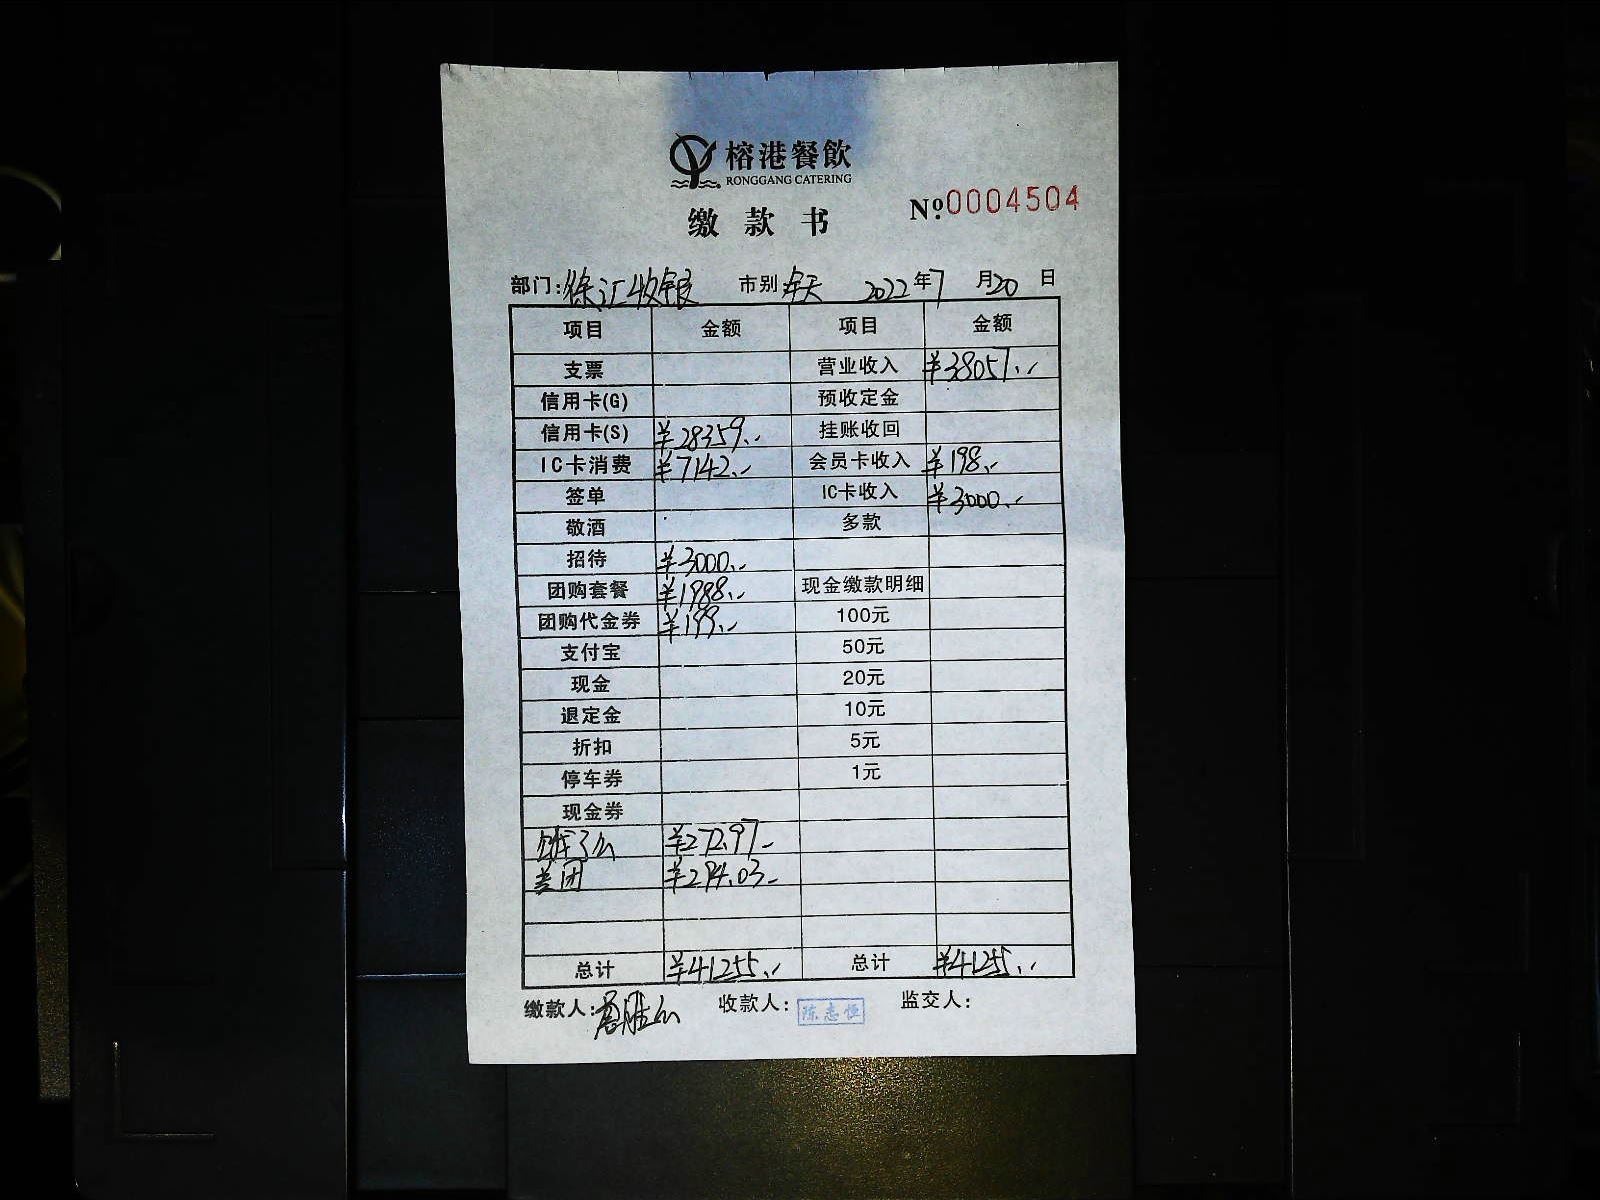 榕港餐飲
RONGGANG CATERING
缴款书
Nº:0004504
部门:徐汇收银 市别 全天 2022年7月20日
项目 金额 项目 金额
支票 营业收入 ¥38057.-
信用卡(G) 预收定金
信用卡(S) ¥28359.- 挂账收回
IC卡消费 ¥7142.- 会员卡收入 ¥198.-
签单 IC卡收入 ¥3000.-
敬酒 多款
招待 ¥3000.-
团购套餐 ¥1988.- 现金缴款明细
团购代金券 ¥199.- 100元
支付宝 50元
现金 20元
退定金 10元
折扣 5元
停车券 1元
现金券
饿了么 ¥272.97-
美团 ¥294.03-
总计 ¥41255.- 总计 ¥41255.-
缴款人: 收款人:陈志恒 监交人: